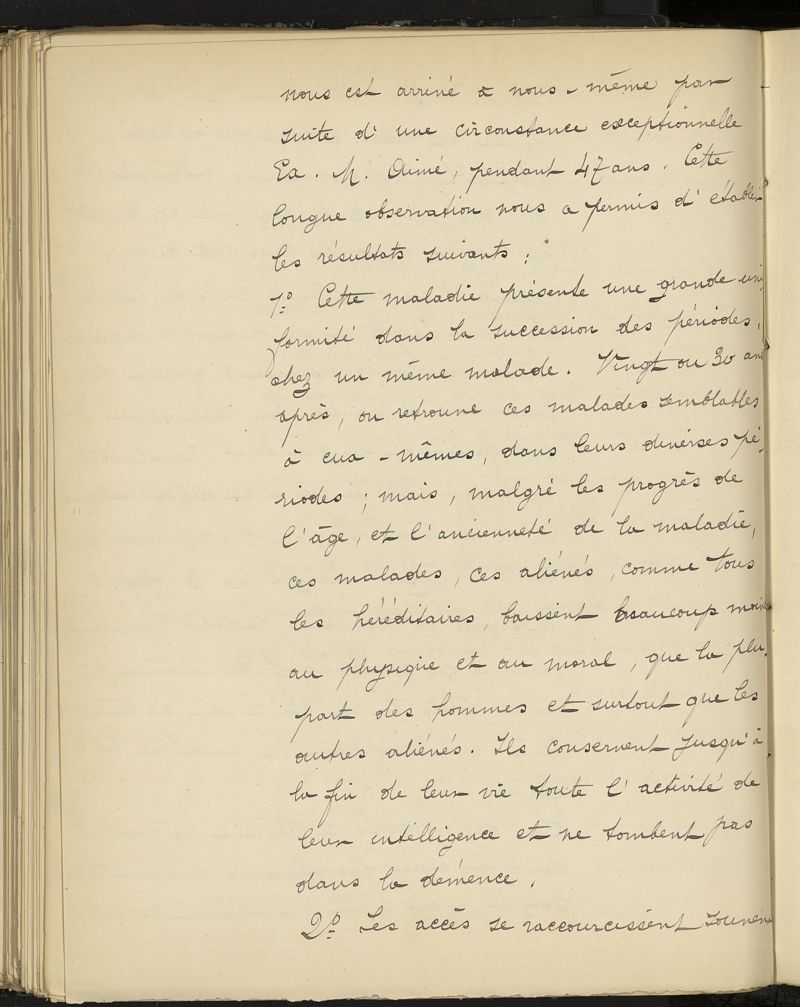 nous est arrivé à nous-même par
suite d'une circonstance exceptionnelle
Ex. M. Aimé, pendant 47 ans. Cette
longue observation nous a permis d'établir
les résultats suivants :
1º Cette maladie présente une grande uni
formité dans la succession des périodes,
chez un même malade. Vingt ou 30 ans
après, on retrouve ces malades semblables
à eux-mêmes, dans leurs diverses pé
riodes ; mais, malgré les progrès de
l'âge, et l'ancienneté de la maladie,
ces malades, ces aliénés, comme tous
les héréditaires, baissent beaucoup moins
au physique et au moral, que la plu-
part des hommes et surtout que les
autres aliénés. Ils conservent jusqu'à
la fin de leur vie toute l'activité de
leur intelligence et ne tombent pas
dans la démence.
2º Les accès se raccourcissent souvent